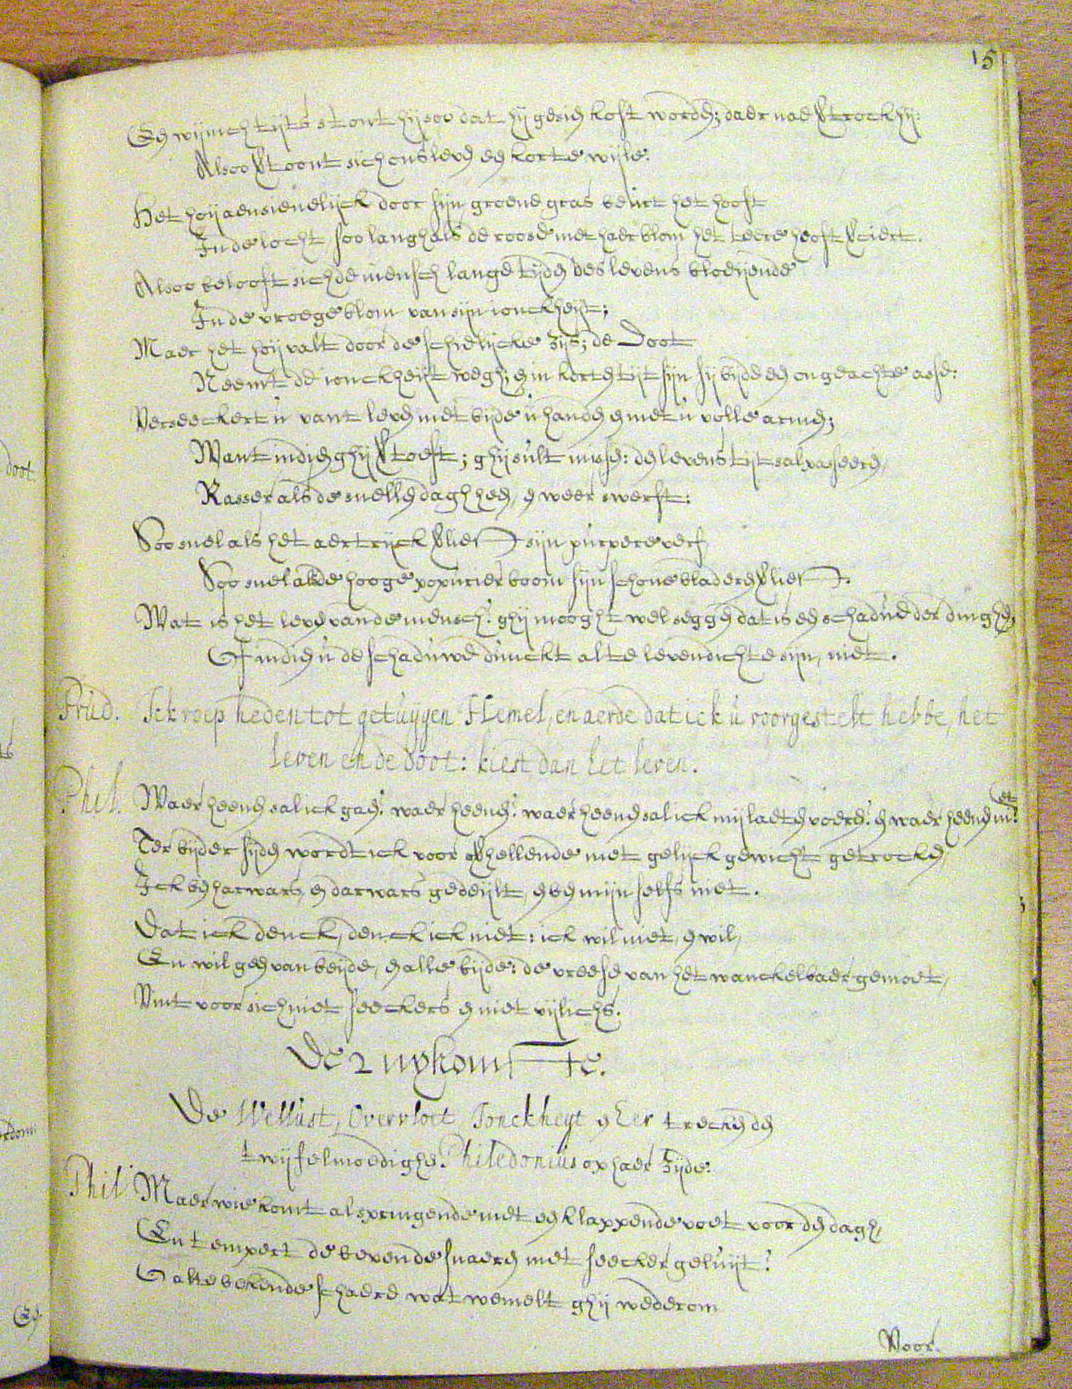 15
En wijnich tijts stont hij soo dat hij gesien kost worden; daer nae vertrock hij:
Alsoo vertoont sich ons leven een korte wijle.
Het hoij aensienelijck door sijn groene gras beurt het hooft
In de locht, soo langh als de roose met haer blom het teere hooft verciert.
Alsoo belooft sich de mensch lange tijden des levens bloeijende
In de vroege blom van sijn ionckheijt;
Maer het hoij valt door de schielijcke zijs; de Doot
Neemt de ionckheijt wegh; en in korten tijt sijn sij beijde een ongeachte assche.
Verseeckert u vant leven met beijde u handen en met u volle armen;
Want indien ghij vertoeft; ghij sult missen: den levens tijt sal passeeren,
Rasser als de snellen dagh heen, en weer swerft:
Soo snel als het aertrijck verliest sijn purpere verf
Soo snel als de hooge popelier boom sijn schone bladeren verliest.
Wat is het leven van de mensch? ghij mooght wel seggen dat is een schaduwe der dinghen,
Of indien u de schaduwe dunckt al te levendich te sijn, niet.
Prud. Ick roep heden tot getuijgen Hemel, en aerde dat ick u voorgestelt hebbe, het
leven en de doot: kiest dan het leven.
Phil. Waer heenen sal ick gaen? waer heenen? waer heenen sal ick mij laeten voeren? en waer heenen niet?
Ter beijder sijden wordt ick voor overhellende met gelijck gewicht getrocken
Ick ben harwars, en darwars gedeijlt, en ben mijn selfs niet.
Dat ick denck, denck ick niet: ick wil niet, en wil,
En wil geen van beijde, en alle beijde: de vreese van het wanckelbaer gemoet,
Vint voor sich niet seeckers en niet vijlichs.
De 2 upkomste.
De Wellust, Overvloet, Jonckheyt en Eer trecken den
twijfelmoedighen Philedonius op haer Zijde.
Phil Maer wie komt al springende met een klappende voet voor den dagh,
En tempert de bevende snaeren met seecker geluijt?
O al te bekende schaere wat wemelt ghij wederom
Voor.
doot.